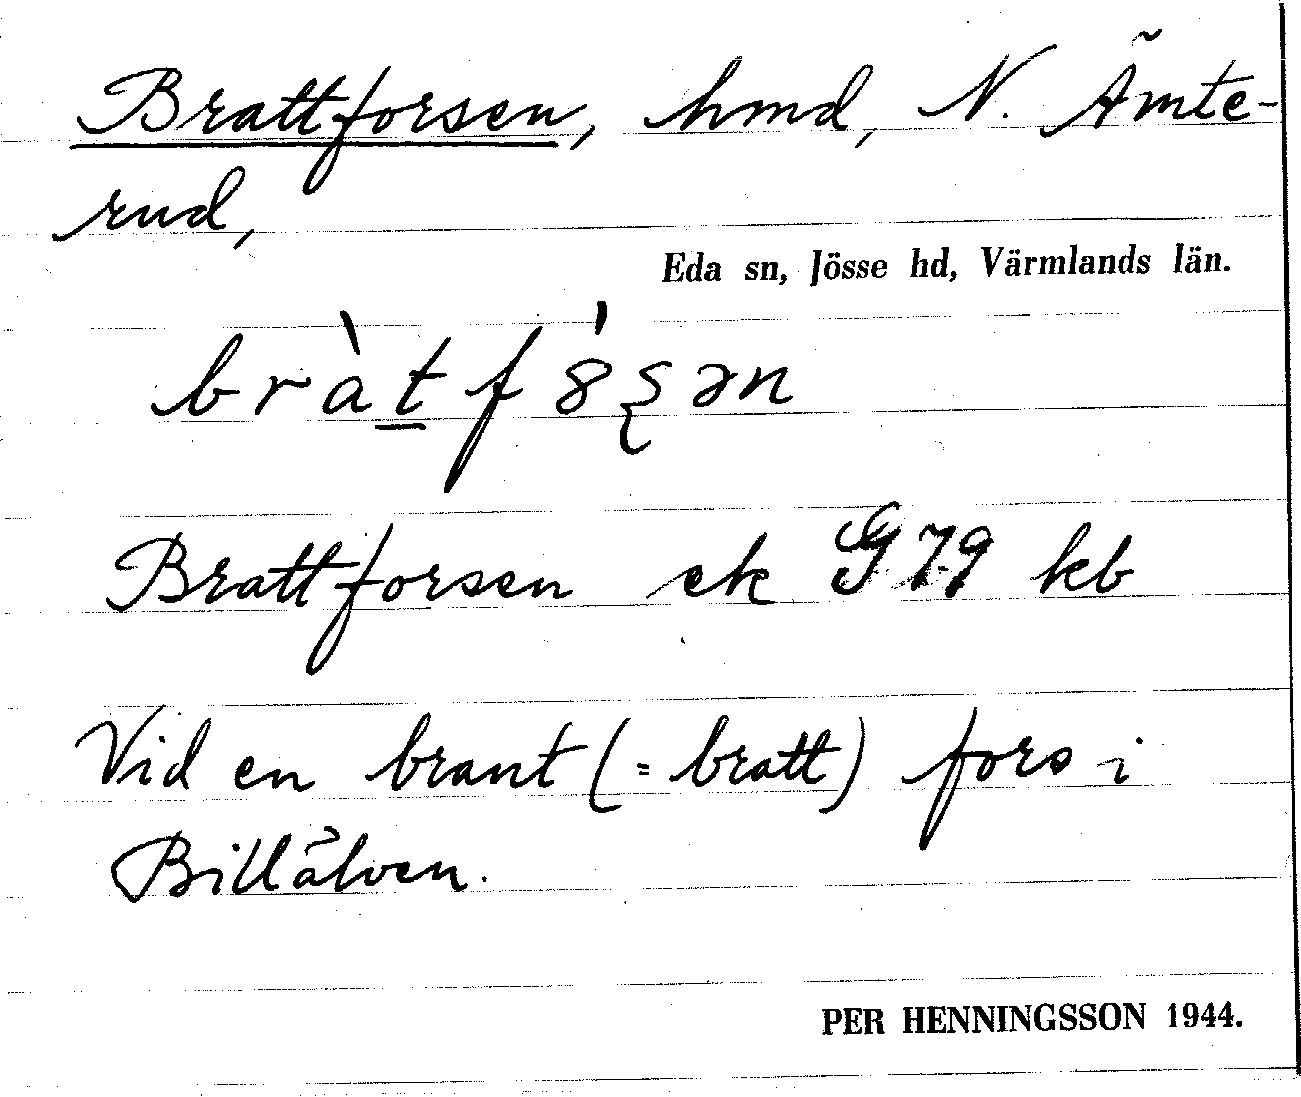 Brattforsen, hmd, N. Ämte-
rud,
Eda sn, Jösse hd, Värmlands län.
bràtf8́ʂən
Brattforsen ek G79 kb
Vid en brant (= bratt) fors i
Billälven.
PER HENNINGSSON 1944.